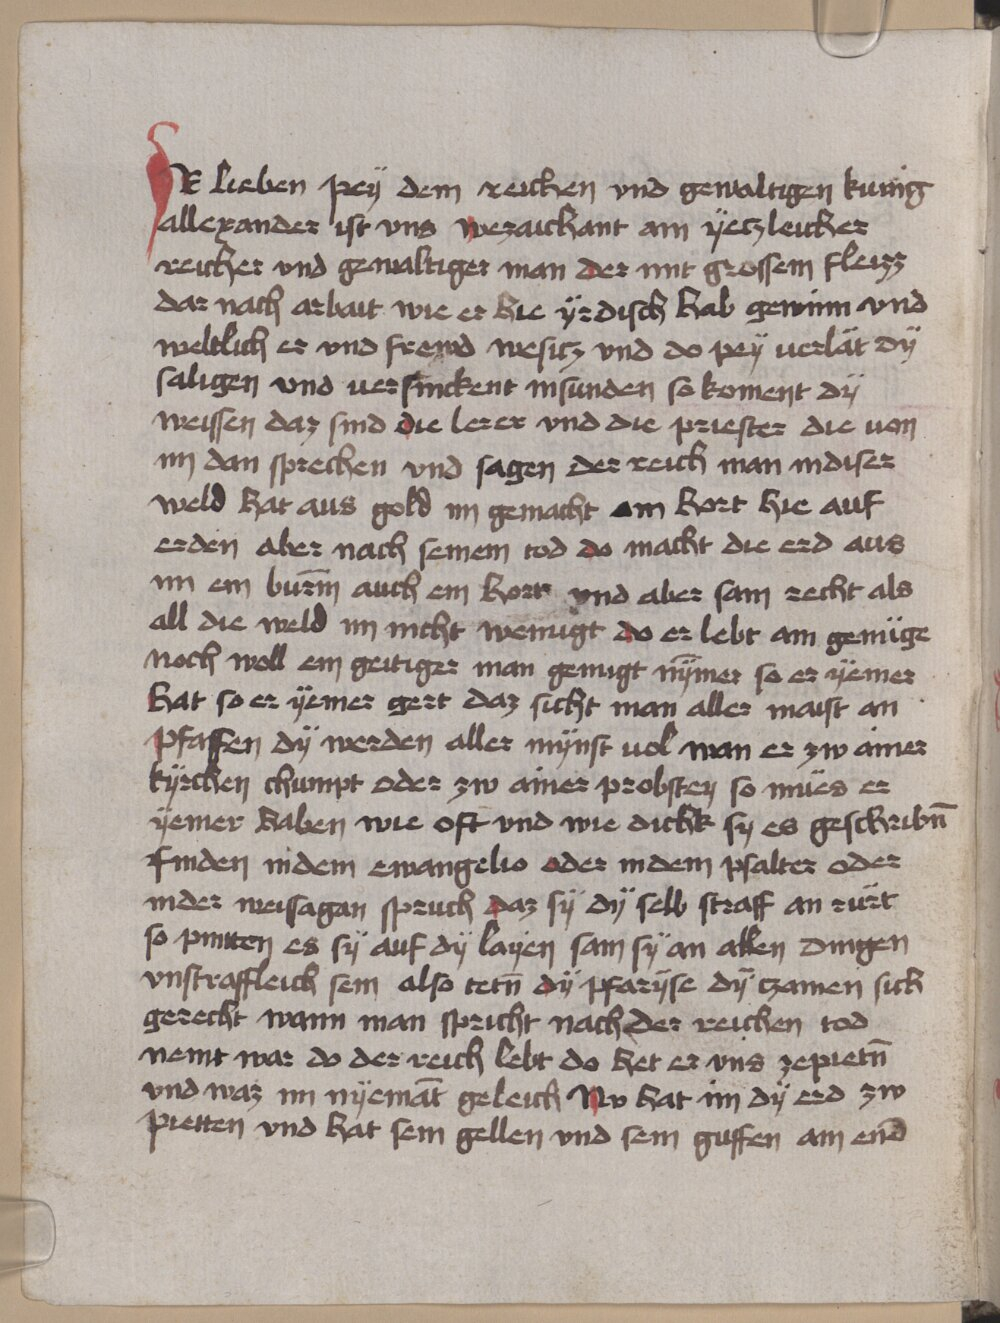 IR lieben peÿ dem reichen vnd gewaltigen kunig
allexander ist vns wezaichant ain ÿetzleicher
reicher vnd gewaltiger man der mit grossem fleizz
dar nach arbait wie er hie ÿrdisch hab gewinn vnd
weltlich er vnd frewd wesicz vnd do peÿ verlät dÿ
saligen vnd versinckent in sunden so koment dÿ
weissen daz sind die lerer vnd die priester die von
im dan sprechen vnd sagen der reich man in diser
weld hat aus gold im gemacht ain hort hie auf
erden aber nach seinem tod do macht die erd aus
im ein burm̄ auch ein hort vnd aber sam recht als
all die weld im nicht wenugt do er lebt am genüge
noch woll ein geitiger man genugt nÿm̄er so er ÿemer
hat so er ÿemer gert daz sicht man aller maist an
pfaffen dÿ werden aller mÿnst vol wan er zw ainer
kÿrchen chumpt oder zw ainer probsteÿ so mües er
ÿemer haben wie oft vnd wie dickh sÿ es geschribn̄
finden in dem ewangelio oder in dem psalter oder
in der weisagan spruch daz sÿ dÿ selb straff an rürt
so pintten es sÿ auf dÿ laÿen sam sÿ an allen dingen
vnstraffleich sein also tetn̄ dÿ pfarÿse dÿ tzamen sich
gerecht wann man spricht nach der reichen tod
nemt war do der reich lebt do het er vns zepietn̄
vnd waz im nÿemāt geleich Nw hat im dÿ erd zw
pietten vnd hat sein gellen vnd sein guffen ain end